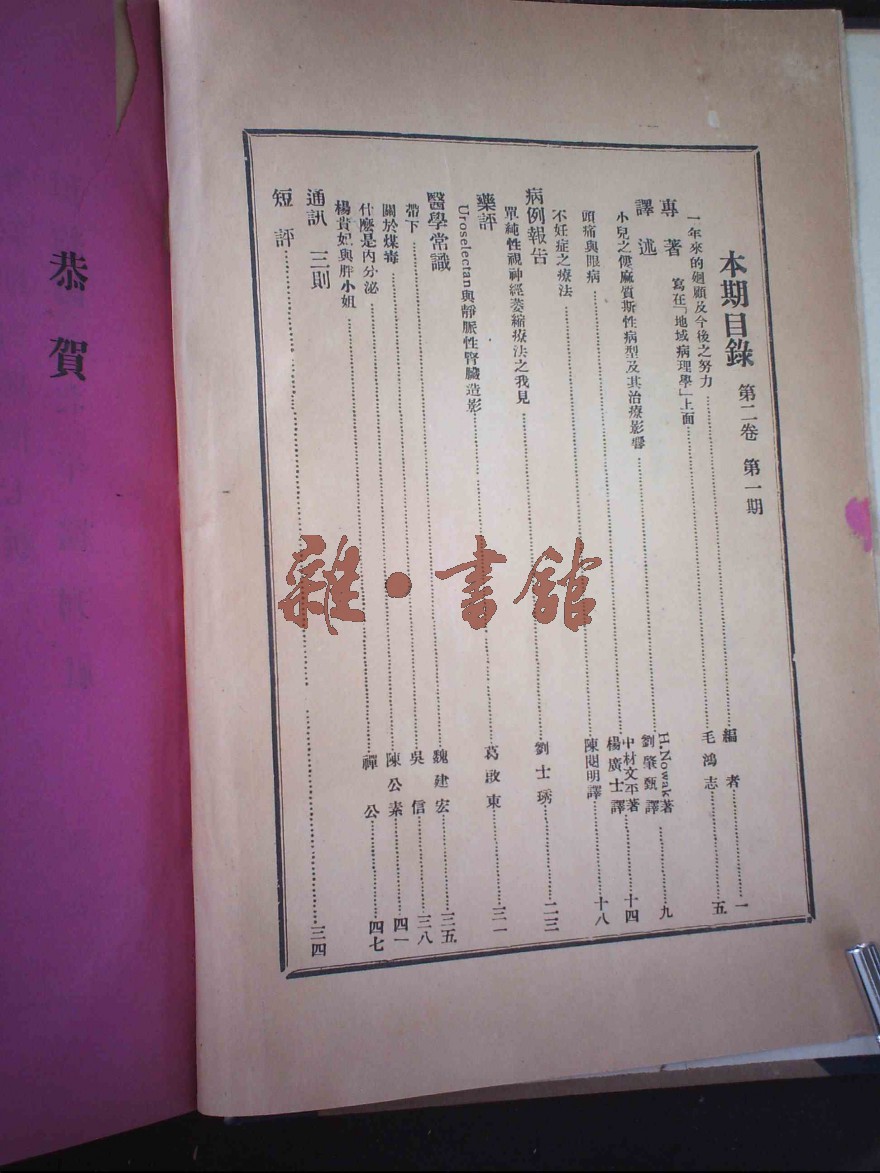 本期目錄 第二卷 第一期
一年來的廻顧及今後之努力……編者……一
專著
寫在「地域病理學」上面……毛鴻志……五
譯述
小兒之僂麻質斯性病型及其治療影響……H.Nowak著 劉肇甄譯……九
頭痛與眼病……中材文平著 楊廣士譯……十四
不妊症之療法……陳閱明譯……十八
病例報告
單純性視神經萎縮療法之我見……劉士琇……二三
藥評
Uroselectan與靜脈性腎臟造影……葛啟東……三一
醫學常識
帶下……魏建宏……三五
關於煤毒……吳信……三八
什麼是內分泌……陳公素……四一
楊貴妃與胖小姐……禪公……四七
通訊 三則
短評……三四
恭賀
雜•書館